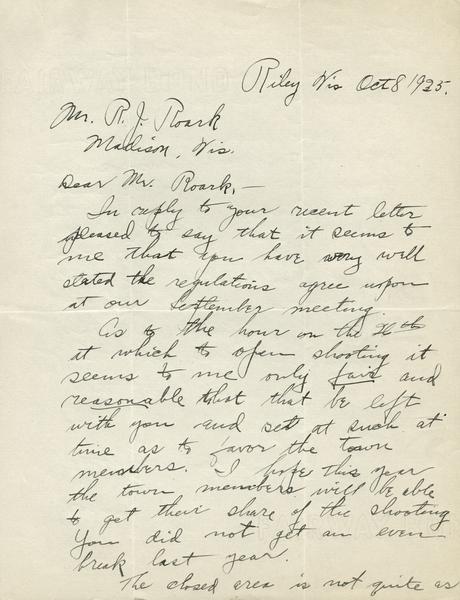 Riley Wis Oct 8 1935.
Mr. R. J. Roark
Madison, Wis.
Dear Mr. Roark,—
In reply to your recent letter
pleased to say that it seems to
me that you have very well
stated the regulations agree upon
at our September meeting.
As to the hour on the
at which to open shooting it
seems to me only fair and
reasonable that that be left
with you and set at such at
time as to favor the town
members. I hope this year
the town members will be able
to get their share of the shooting
You did not get an even
break last year.
The closed area is not quite as